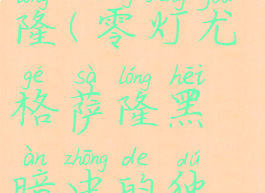 隆(零灯尤
gé sà lóng hēi
格萨隆黑
àn zhōng de dú
暗中的独